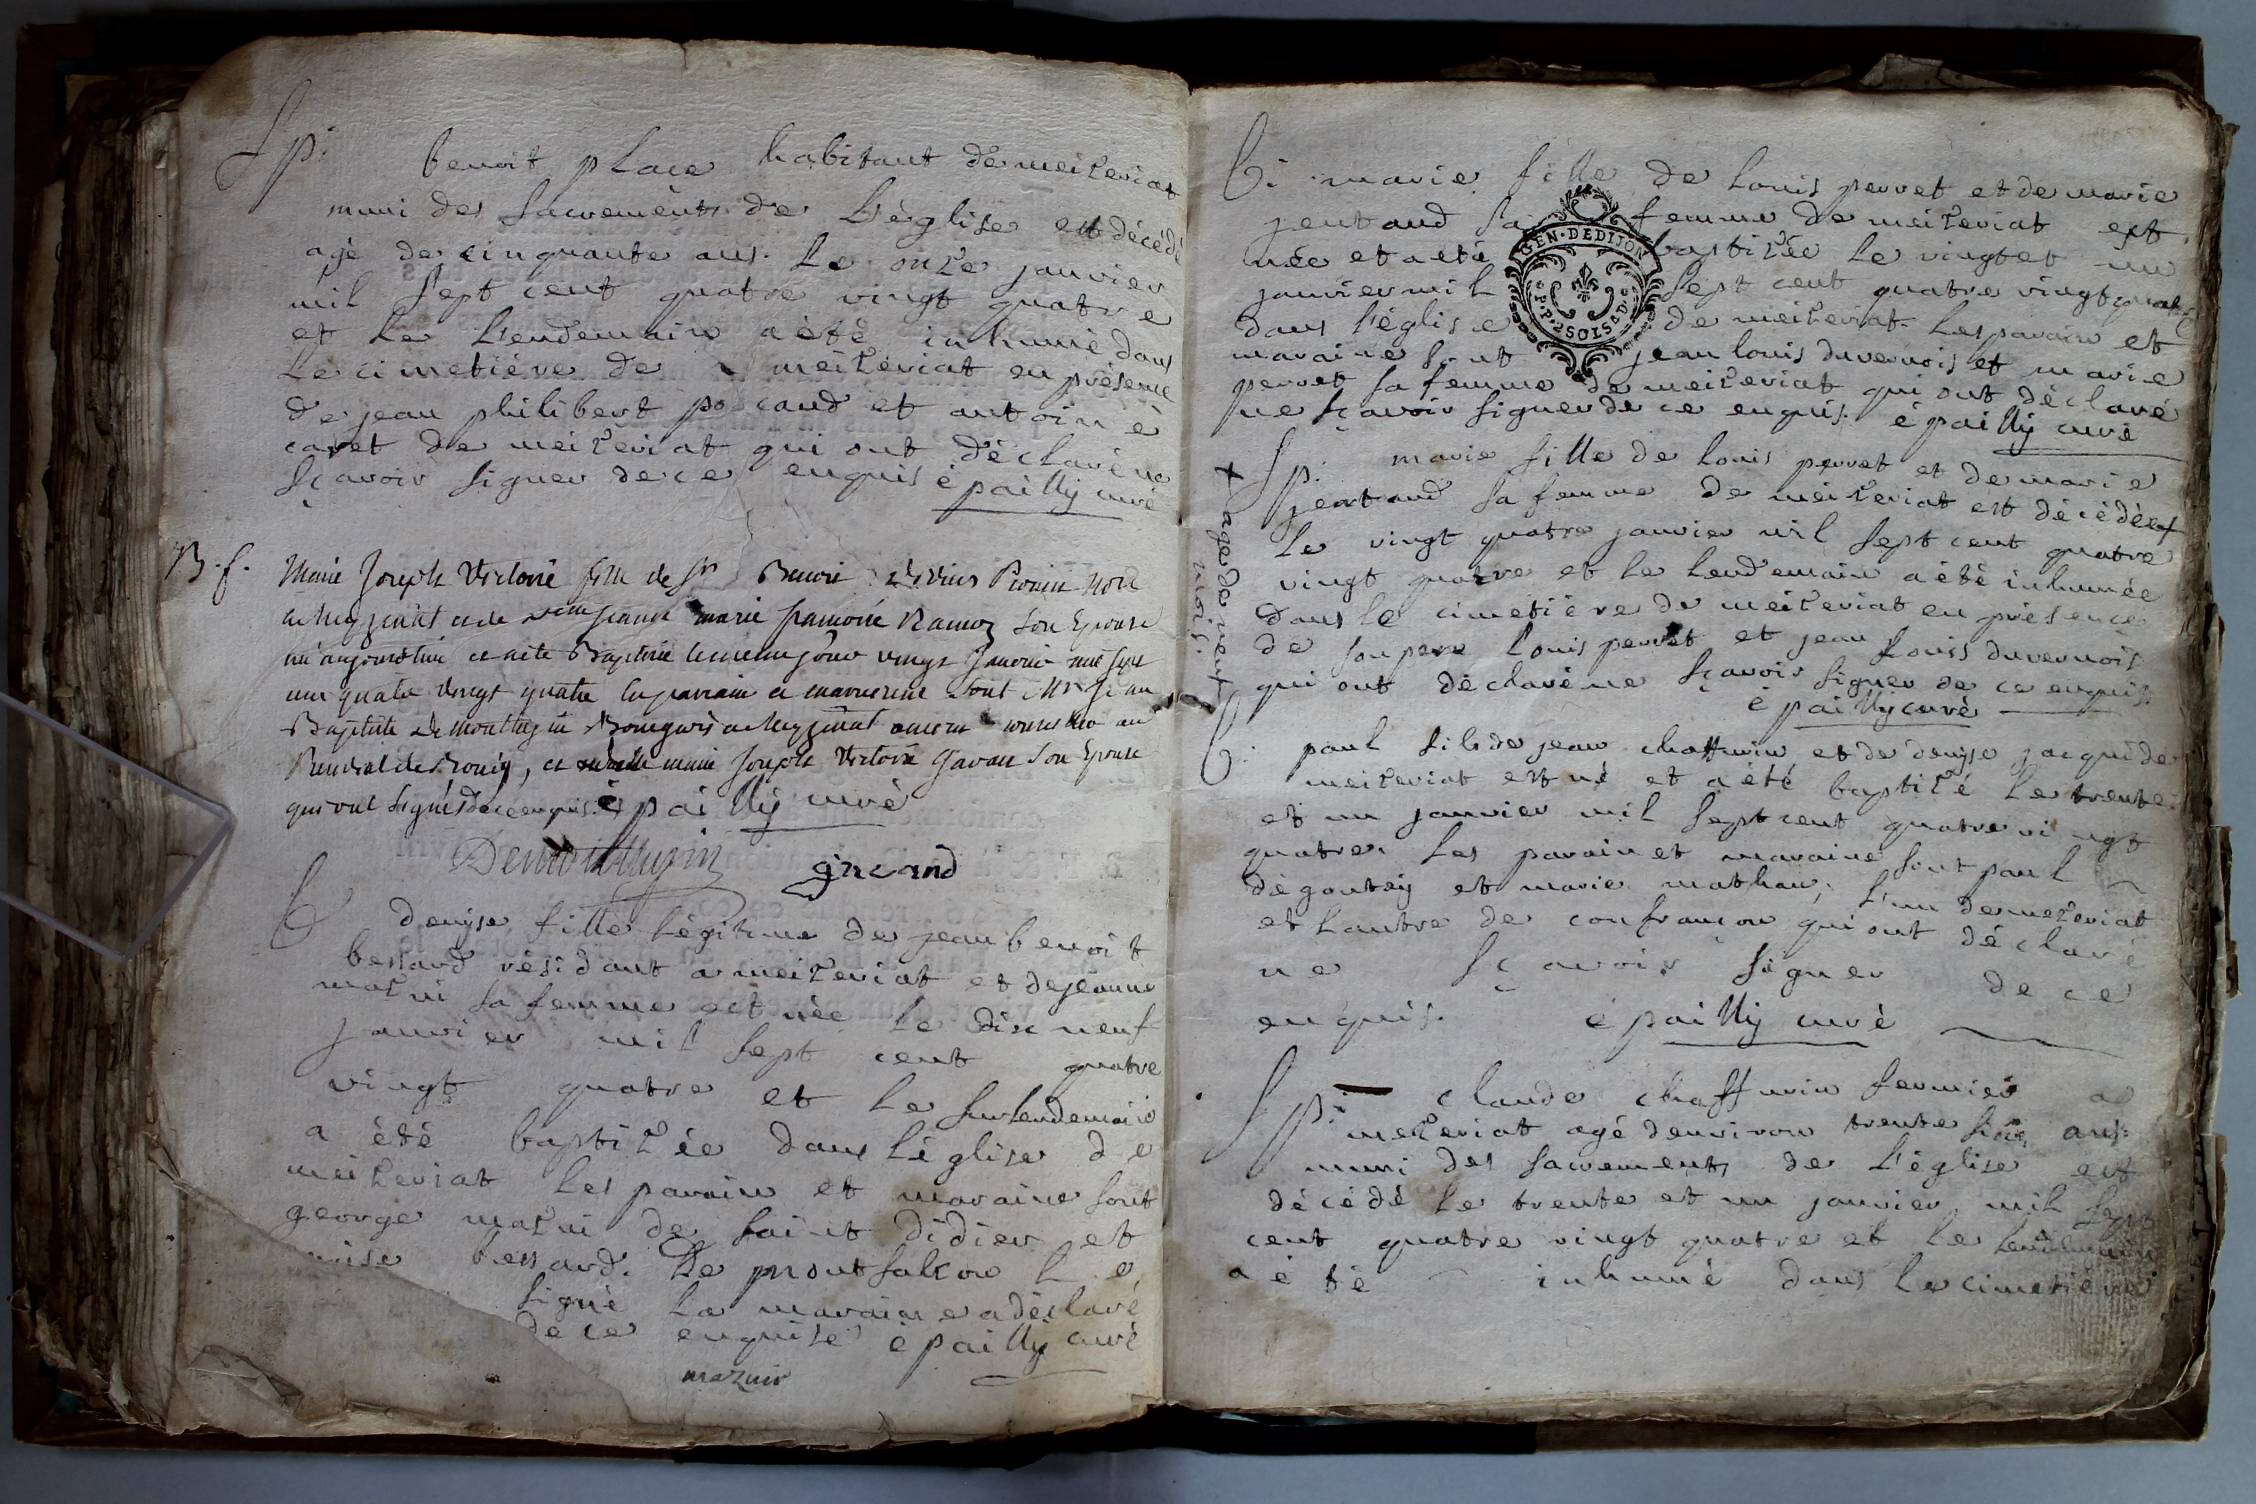 Sp. benoit place habitant de meizeriat
muni des sacrements de L'église est décédé
agé de cinquante ans. Le onze janvier
mil sept cent quatre vingt quatre
et le Lendemain a été inhumé dans
Le cimetière de meizeriat en présence
de jean philibert pocaud et antoine
caret de meizeriat qui ont déclaré ne
sçavoir signer de ce enquis é pailly curé
B. f. Marie Joseph Victoire fille de Sr
a Mezzeriat et de marie son Epouse
née aujourdhui et a été Baptisée le meme jour vingt Janvier mil sept
cent quatre vingt quatre les parrain et marraine sont Mr Jean
Baptiste Demonthezin Bourgeois a Mezzeriat
et marie Joseph Victoire son Epouse
qui ont signés de ce enquis. é pailly curé
girand
B denyse fille légitime de jean benoit
bessard résidant a meizeriat et de jeanne
mazui sa femme est née le dix neuf
janvier mil sept cent quatre
vingt quatre et Le surlendemain
a été baptizée dans L'église de
meizeriat Les parain et maraine sont
george mazui de saint didier et
bessard. De montfalcon Le
signé La maraine a déclaré
de ce enquise é pailly curé
mazuir
B. marie fille de Louis perret et de marie
jentaud sa femme de meizeriat est
née et a été bastizée Le vingt et un
janvier mil sept cent quatre vingt quatre
dans l'église de meizeriat. Les parain et
maraine sont jean louis duvernois et marie
perret sa femme de meizeriat qui ont déclaré
ne sçavoir signer de ce enquis. é pailly curé
GEN · DE DIJON
P · P · 2 SOLS 4 D
Sp. marie fille de louis perret et de marie
jentaud sa femme de meizeriat est décédée +
Le vingt quatre janvier mil sept cent quatre
vingt quatre et le Lendemain a été inhumée
dans le cimetière de meizeriat en présence
de son pere Louis perret et jean Louis duvernois
qui ont déclaré ne sçavoir signer de ce enquis.
é pailly curé
+ agée de neuf
mois.
B. paul fils de jean chaffurin et de denyse jacqui de
meizeriat est né et a été baptizé Le trente
et un janvier mil sept cent quatre vingt
quatre. Les parain et maraine sont paul
dégoutey et marie mathau, l'un de mezeriat
et Lautre de confrançon qui ont déclaré
ne sçavoir signer de ce
enquis. é pailly curé
Sp. claude chaffurin fermier a
mezeriat agé denviron trente six ans
muni des sacrements de L'église est
décédé Le trente et un janvier mil sept
cent quatre vingt quatre et le Lendemain
a été inhumé dans Le cimetière